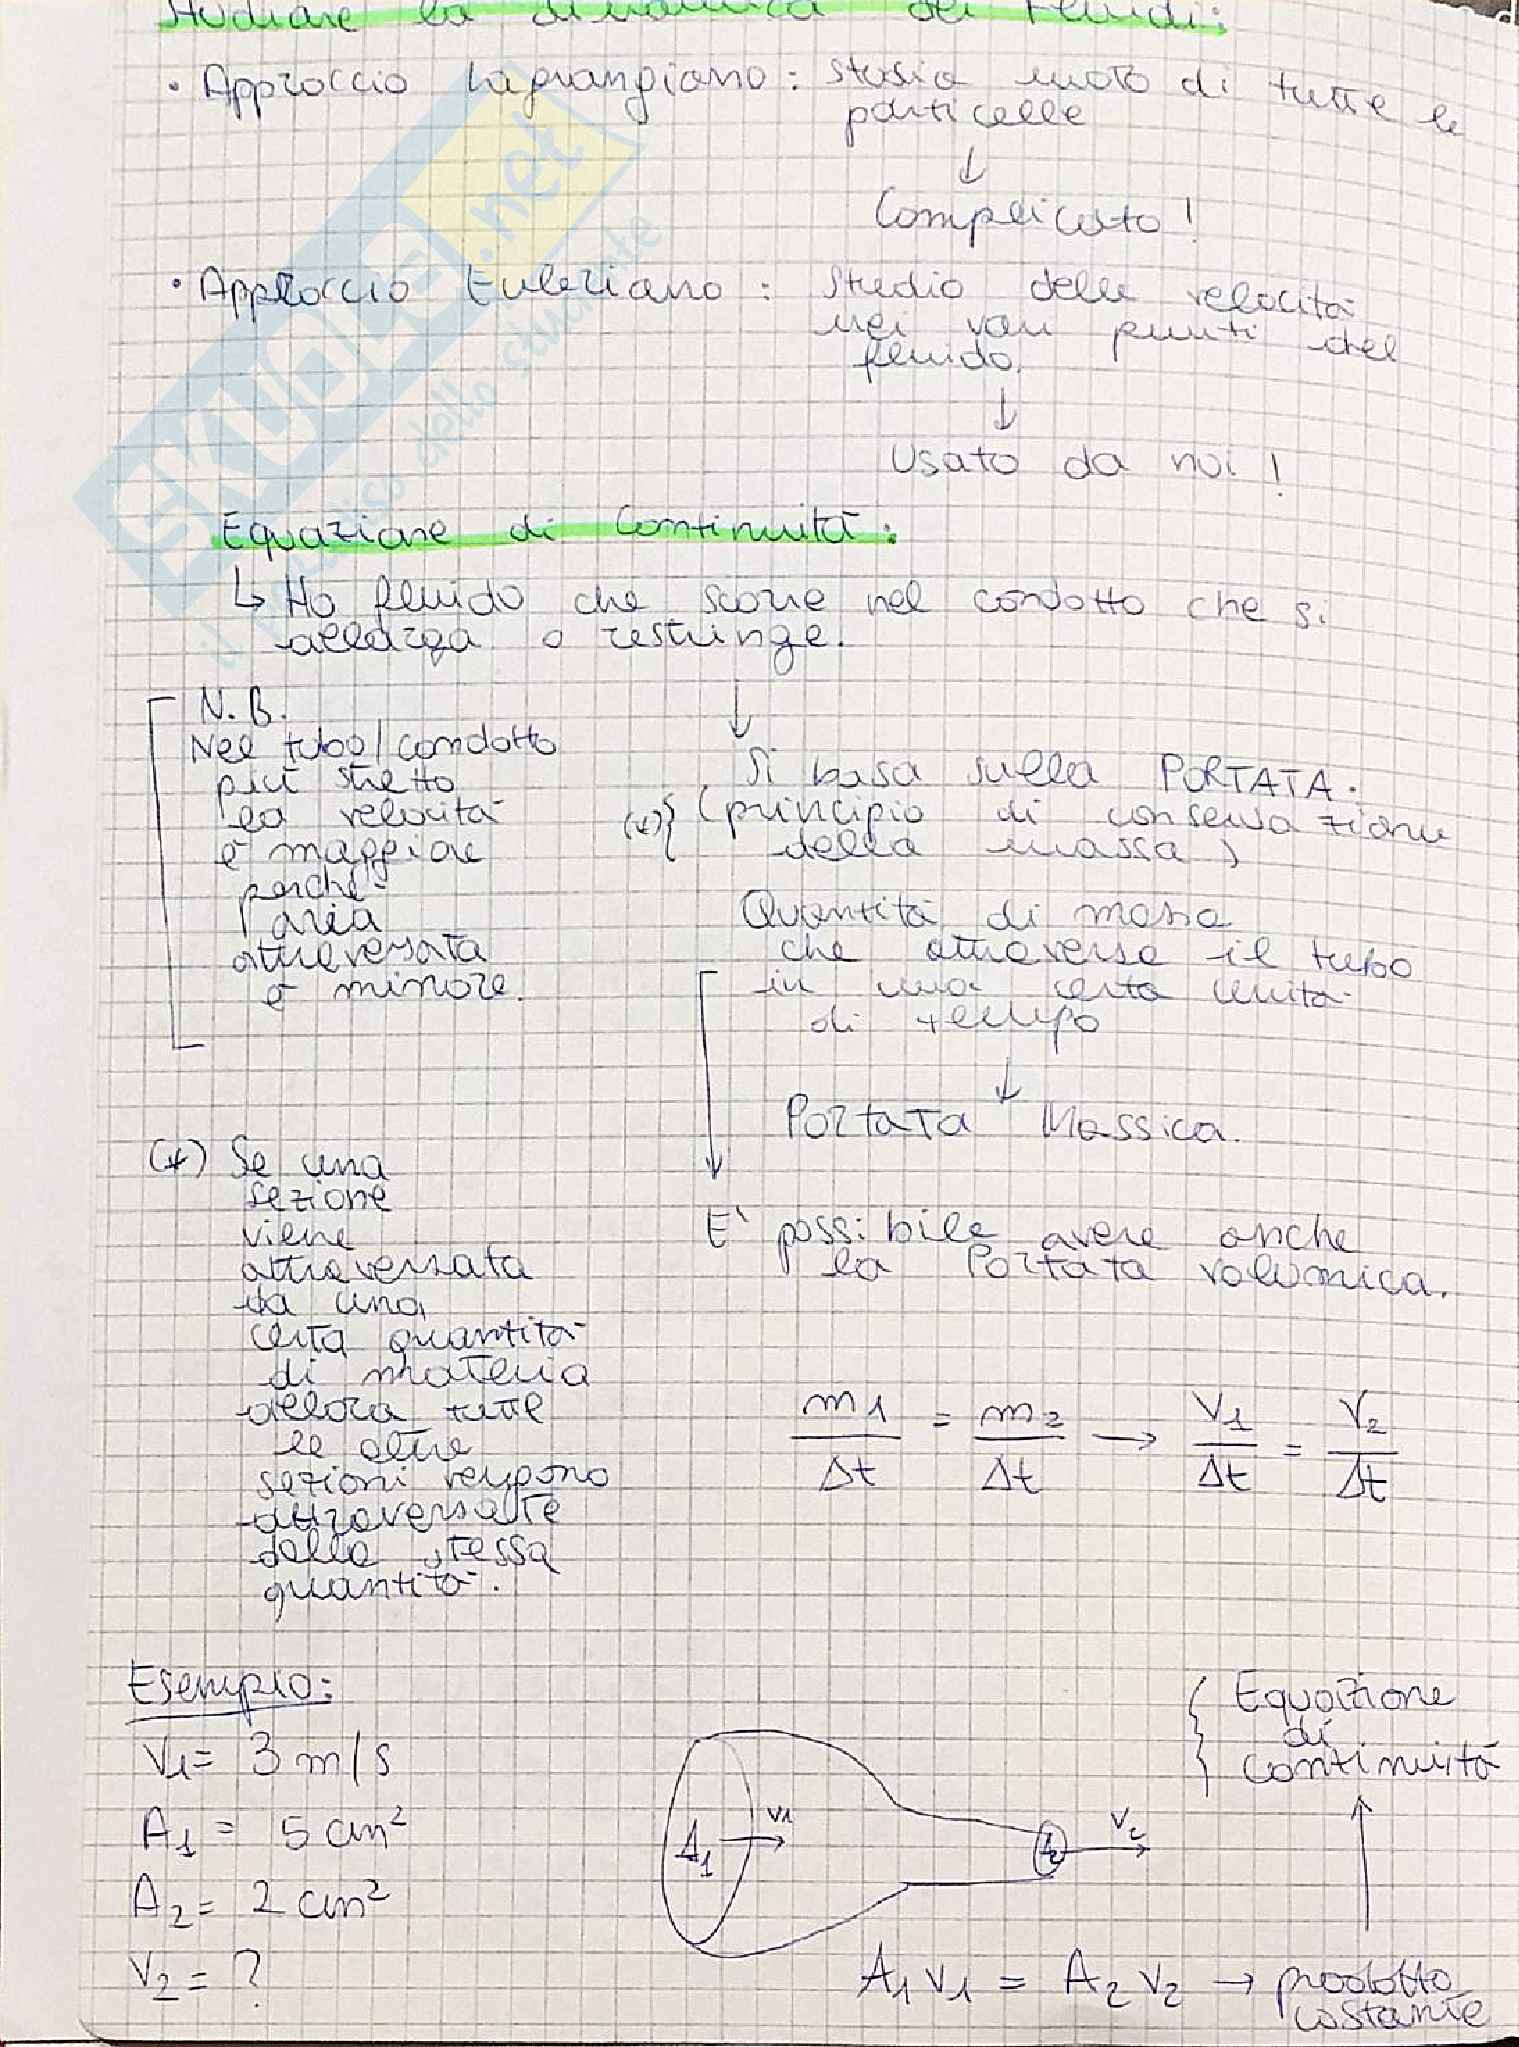 Studiare la dinamica dei Fluidi:
• Approccio Lagrangiano: studio moto di tutte le
particelle
↓
Complicato!
• Approccio Euleriano: Studio delle velocità
nei vari punti del
fluido.
↓
Usato da noi!
Equazione di Continuità:
↳ Ho fluido che scorre nel condotto che si
allarga o restringe.
↓
N.B.
Nel tubo/condotto
più stretto
la velocità
è maggiore
perché
area
attraversata
è minore.
Si basa sulla PORTATA.
(*){ (principio di conservazione
della massa)
Quantità di massa
che attraversa il tubo
in una certa unità
di tempo
↓
Portata Massica.
E' possibile avere anche
la Portata volumica.
(*) Se una
sezione
viene
attraversata
da una
certa quantità
di materia
allora tutte
le altre
sezioni vengono
attraversate
dalla stessa
quantità.
m1/Δt = m2/Δt → V1/Δt = V2/Δt
Esempio:
v1= 3 m/s
A1 = 5 cm²
A2= 2 cm²
v2= ?
A1 v1
A2 v2
{ Equazione
di
continuità
↑
A1 v1 = A2 v2 → prodotto
costante
SKUOLA.net
il paradiso dello studente